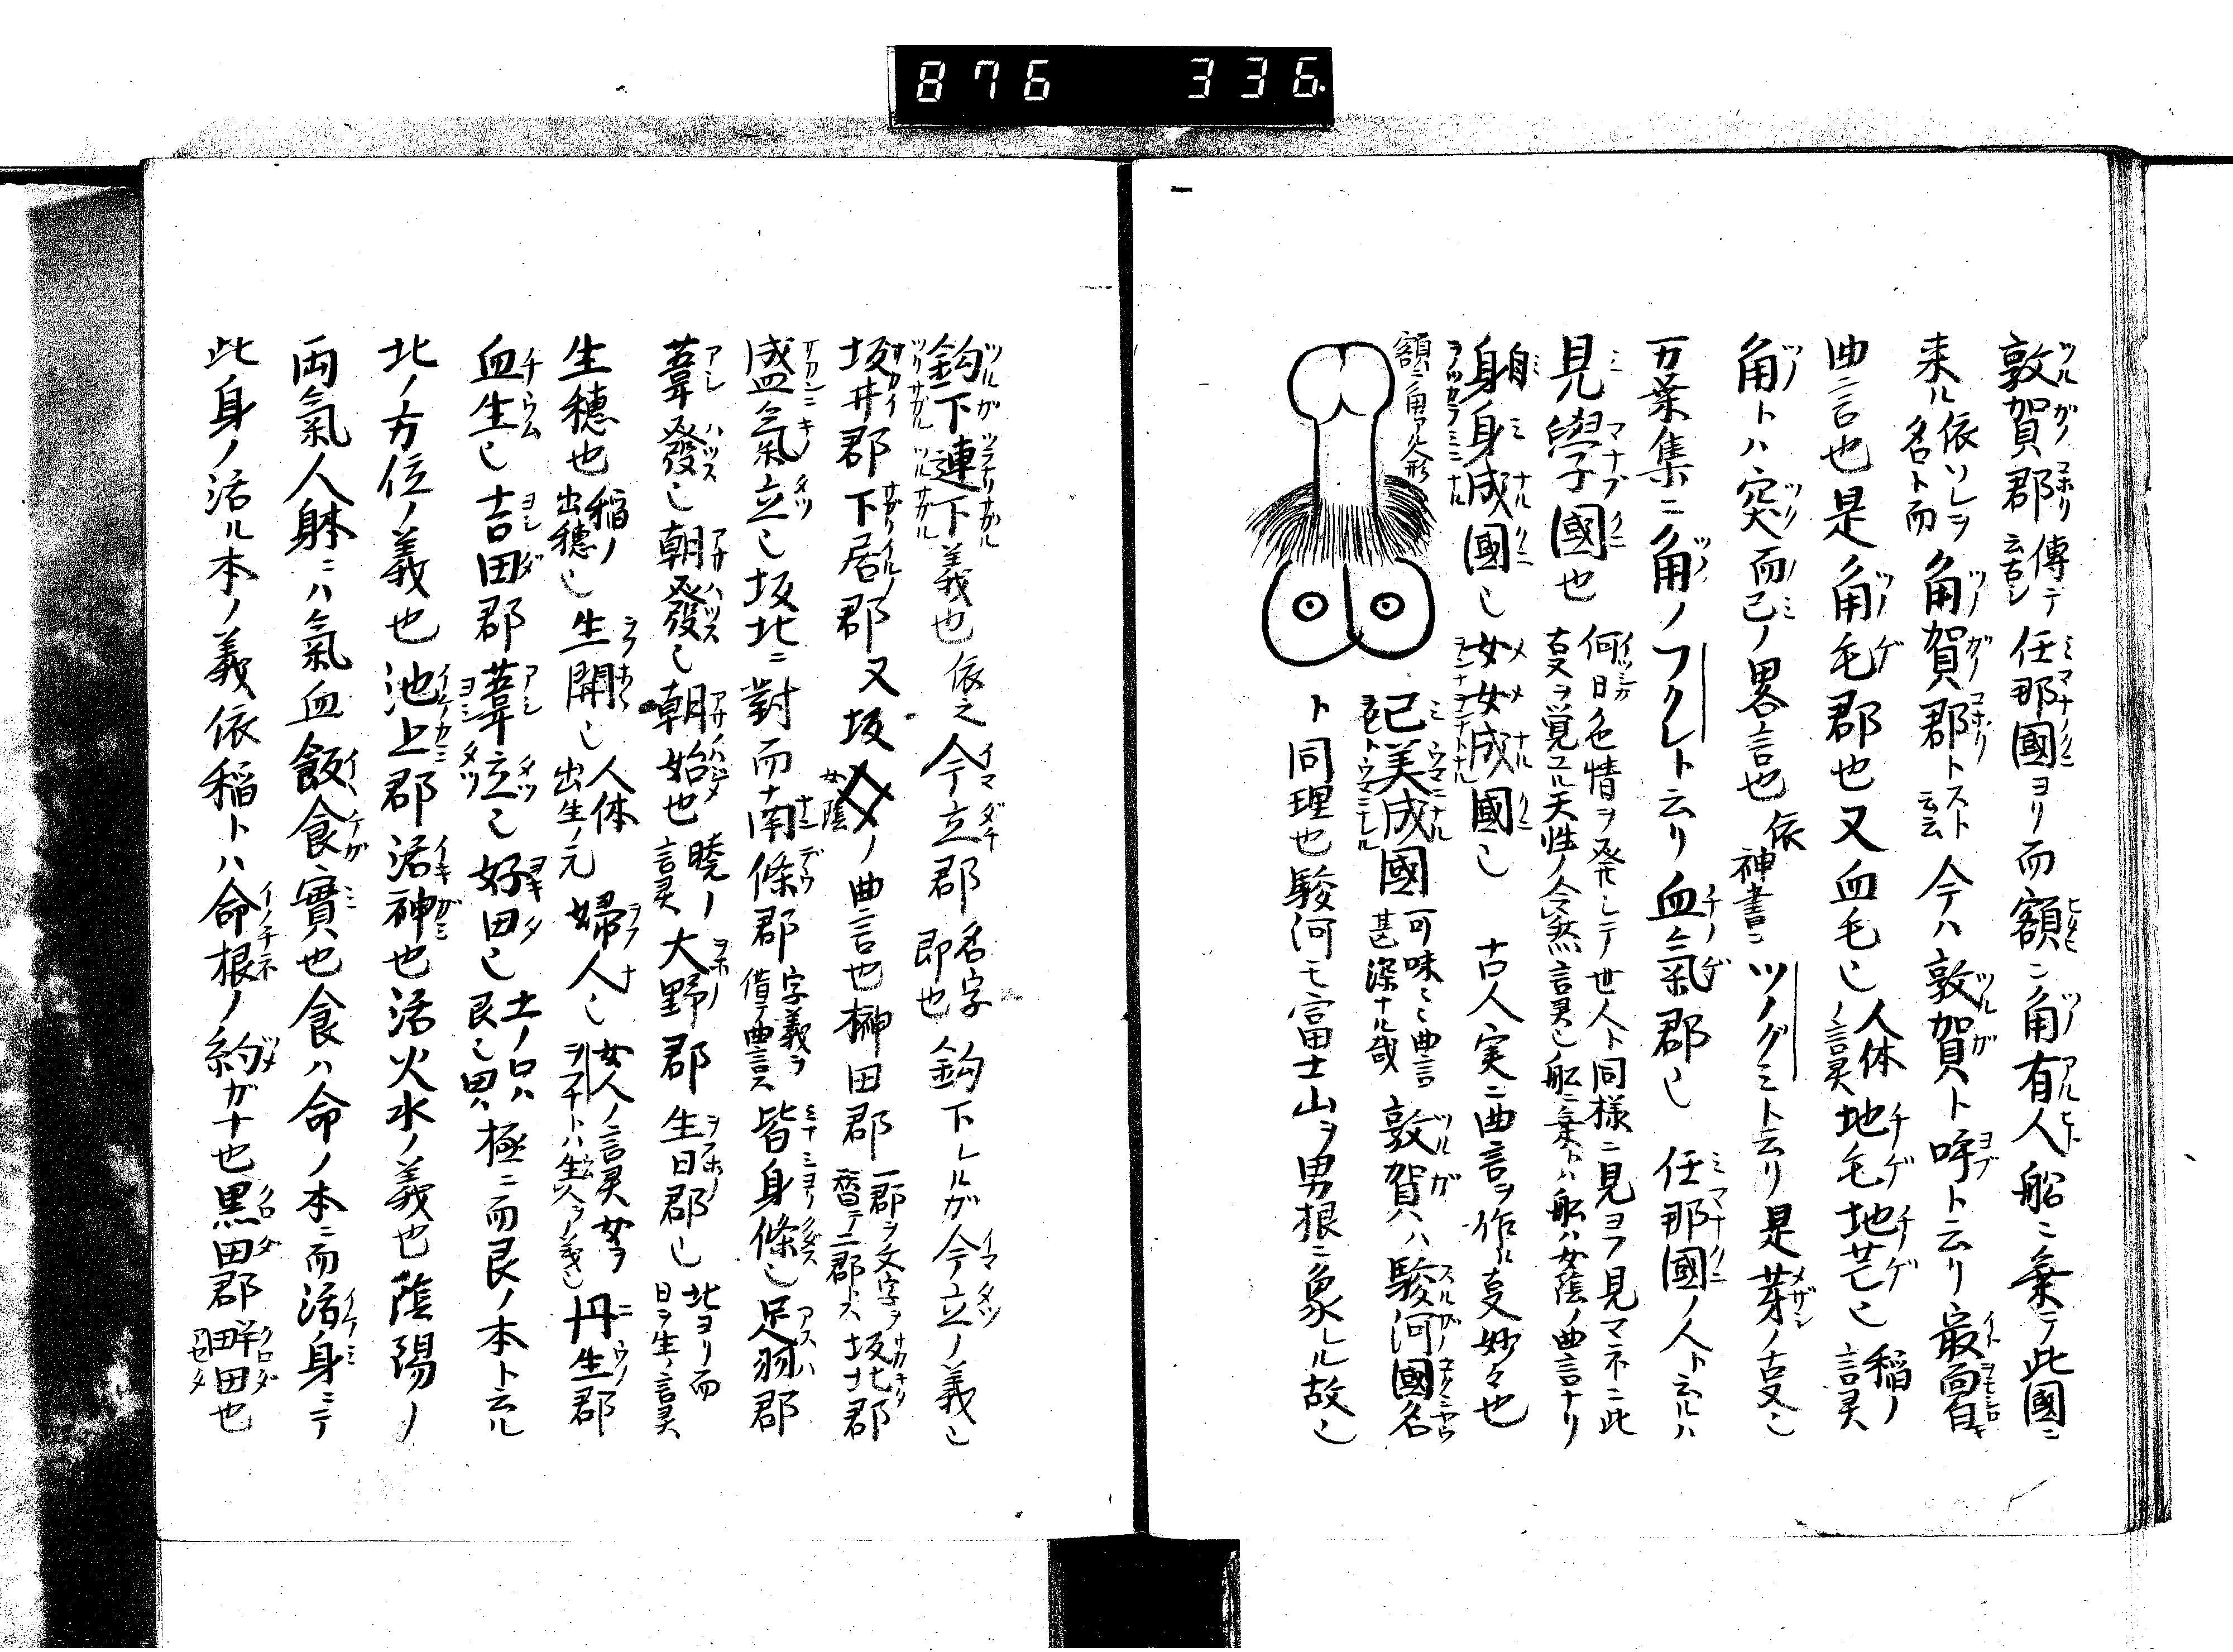 876 336
敦賀郡 傳テ云古ヘ 任那國ヨリ而額ニ角有人船ニ乗テ此國ニ
来ル 依ソレヲ名ト而 角賀郡トスト云云 今ハ敦賀ト呼ト云リ最面白
曲言也是角毛郡也又血毛也 人体ノ言灵 地毛地芒也 稲ノ言灵
角トハ突而已ノ畧言也 依神書ニ ツノグミト云リ是芽ノ古叓也
万葉集ニ角ノフクレト云リ 血氣郡也 任那國ノ人ト云ルハ
見學國也 何日色情ヲ発シテ世人ト同様ニ見ヨフ見マネニ此
叓ヲ覚ユル天性ノ令然言灵也船ニ乗トハ船ハ女陰ノ曲言ナリ
身身成國也 女女成國也 古人実ニ曲言ヲ作ル叓妙々也
額ニ角アル人形
己美成國 可味ミ曲言甚深ナル哉 敦賀ハ駿河國名
ト同理也駿河モ富士山ヲ男根ニ象レル故也
鈎下連下義也 依之 今立郡 名字即也 鈎下レルガ今立ノ義也
坂井郡 下居郡 又坂女陰ノ曲言也榊田郡 一郡ヲ文字ヲ替テ二郡トス 坂北郡
盛氣立也坂北ニ對而南條郡 字義ヲ借テ曲言ス 皆身條也足羽郡
葦發也朝發也朝始也 暁ノ言灵 大野郡 生日郡也 北ヨリ而日ヲ生ノ言灵
生穂也 稲ノ出穂也 生開也 人体出生ノ元 婦人也 女人ノ言灵 丹生郡
血生也 吉田郡 葦立也 好田也 土ノ口ハ艮也 極ニ而艮ノ本ト云ル
北ノ方位ノ義也 池上郡 活神也活火水ノ義也 陰陽ノ
両氣人躰ニハ氣血飯食實也食ハ命ノ本ニ而活身ニテ
此身ノ活ル本ノ義依稲トハ命根ノ約ガナ也黒田郡 畔田也